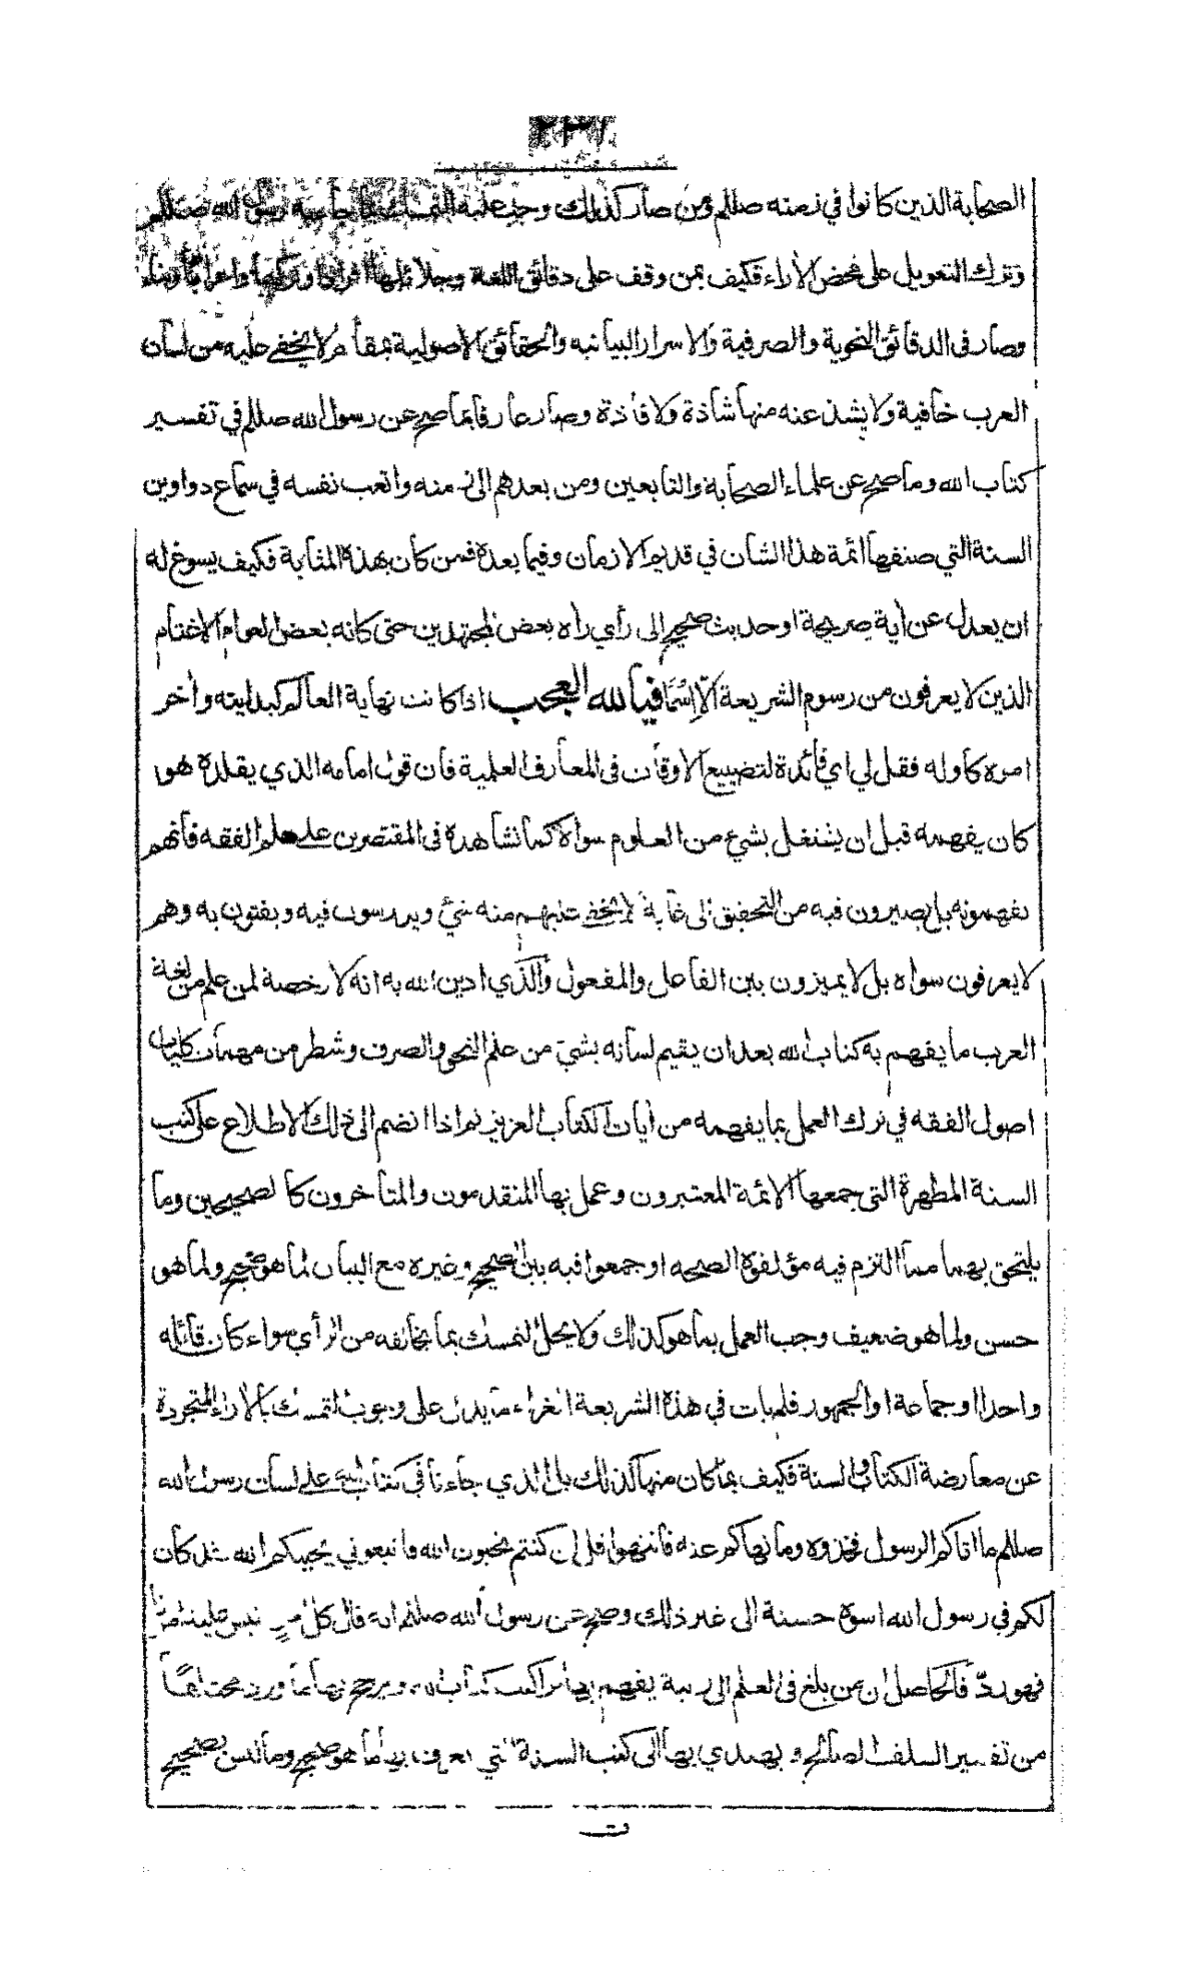 الصحابة الذين كانوا في زمنه صللم ومن صار كذلك وجب عليه التمسك بما جاء به رسول الله صللم
وترك التعويل على محض الأراء فكيف بمن وقف على دقائق اللغة وجلائلها افرادا وتركيبا واعرابا وبناء
وصار فى الدقائق النحوية والصرفية والاسرار البيانيه والحقائق الاصولية بمقام لا يخفى عليه من لسان
العرب خافية ولا يشذ عنه منها شاذة ولا فاذة وصار عارفا بما صح عن رسول الله صللم في تفسير
كتاب الله وما صح عن علماء الصحابة والتابعين ومن بعدهم الى زمنه واتعب نفسه في سماع دواوين
السنة التي صنفها ائمة هذا الشان في قديم الازمان وفيما بعده فمن كان بهذه المثابة فكيف يسوغ له
ان يعدل عن أية صريحة او حديث صحيح إلى رأي رأه بعض المجتهدين حتى كانه بعض العوام الاغتام
الذين لا يعرفون من رسوم الشريعة الا اسما فيا لله العجب اذا كانت نهاية العالم كبدايته وأخر
امره كأوله فقل لي اي فائدة لتضييع الاوقات فى المعارف العلمية فان قول امامه الذي يقلده هو
كان يفهمه قبل ان يشتغل بشيء من العلوم سواه كما نشاهده فى المقتصرين على علم الفقه فأنهم
يفهمونه بل يصيرون فيه من التحقيق إلى غاية لا يخفى عليهم منه شيء ويدرسون فيه ويفتون به وهم
لا يعرفون سواه بل لا يميزون بين الفاعل والمفعول والذي ادين الله به انه لا رخصة لمن علم من لغة
العرب ما يفهم به كتاب الله بعد ان يقيم لسانه بشئ من علم النحو والصرف وشطر من مهمات كليات
اصول الفقه في ترك العمل بما يفهمه من أيات الكتاب العزيز ثم اذا انضم الى ذلك الاطلاع على كتب
السنة المطهرة التى جمعها الائمة المعتبرون وعمل بها المتقدمون والمتأخرون كالصحيحين وما
يلتحق بهما مما التزم فيه مؤلفوه الصحه او جمعوا فيه بين الصحيح وغيره مع البيان لما هو صحيح ولما هو
حسن ولما هو ضعيف وجب العمل بما هو كذلك ولا يحل التمسك بما يخالفه من الرأي سواء كان قائله
واحدا او جماعة او الجمهور فلم يات في هذه الشريعة الغراء ما يدل على وجوب التمسك بالأراء المتجردة
عن معارضة الكتاب والسنة فكيف بما كان منها كذلك بل الذي جاءنا في كتاب الله على لسان رسول الله
صللم ما اتاكم الرسول فخذوه وما نهاكم عنه فأنتهوا قل ان كنتم تحبون الله فاتبعوني يحببكم الله لقد كان
لكم في رسول الله اسوة حسنة الى غير ذلك وصح عن رسول الله صللم انه قال كل امر ليس عليه امرنا
فهو ردّ فالحاصل ان من بلغ فى العلم الى رتبة يفهم بها تراكيب كتاب الله ويرجح بها بما ورد مختلفا
من تفسير السلف الصالح و يهتدي بها الى كتب السنة التي يعرف بها ما هو صحيح وما ليس بصحيح